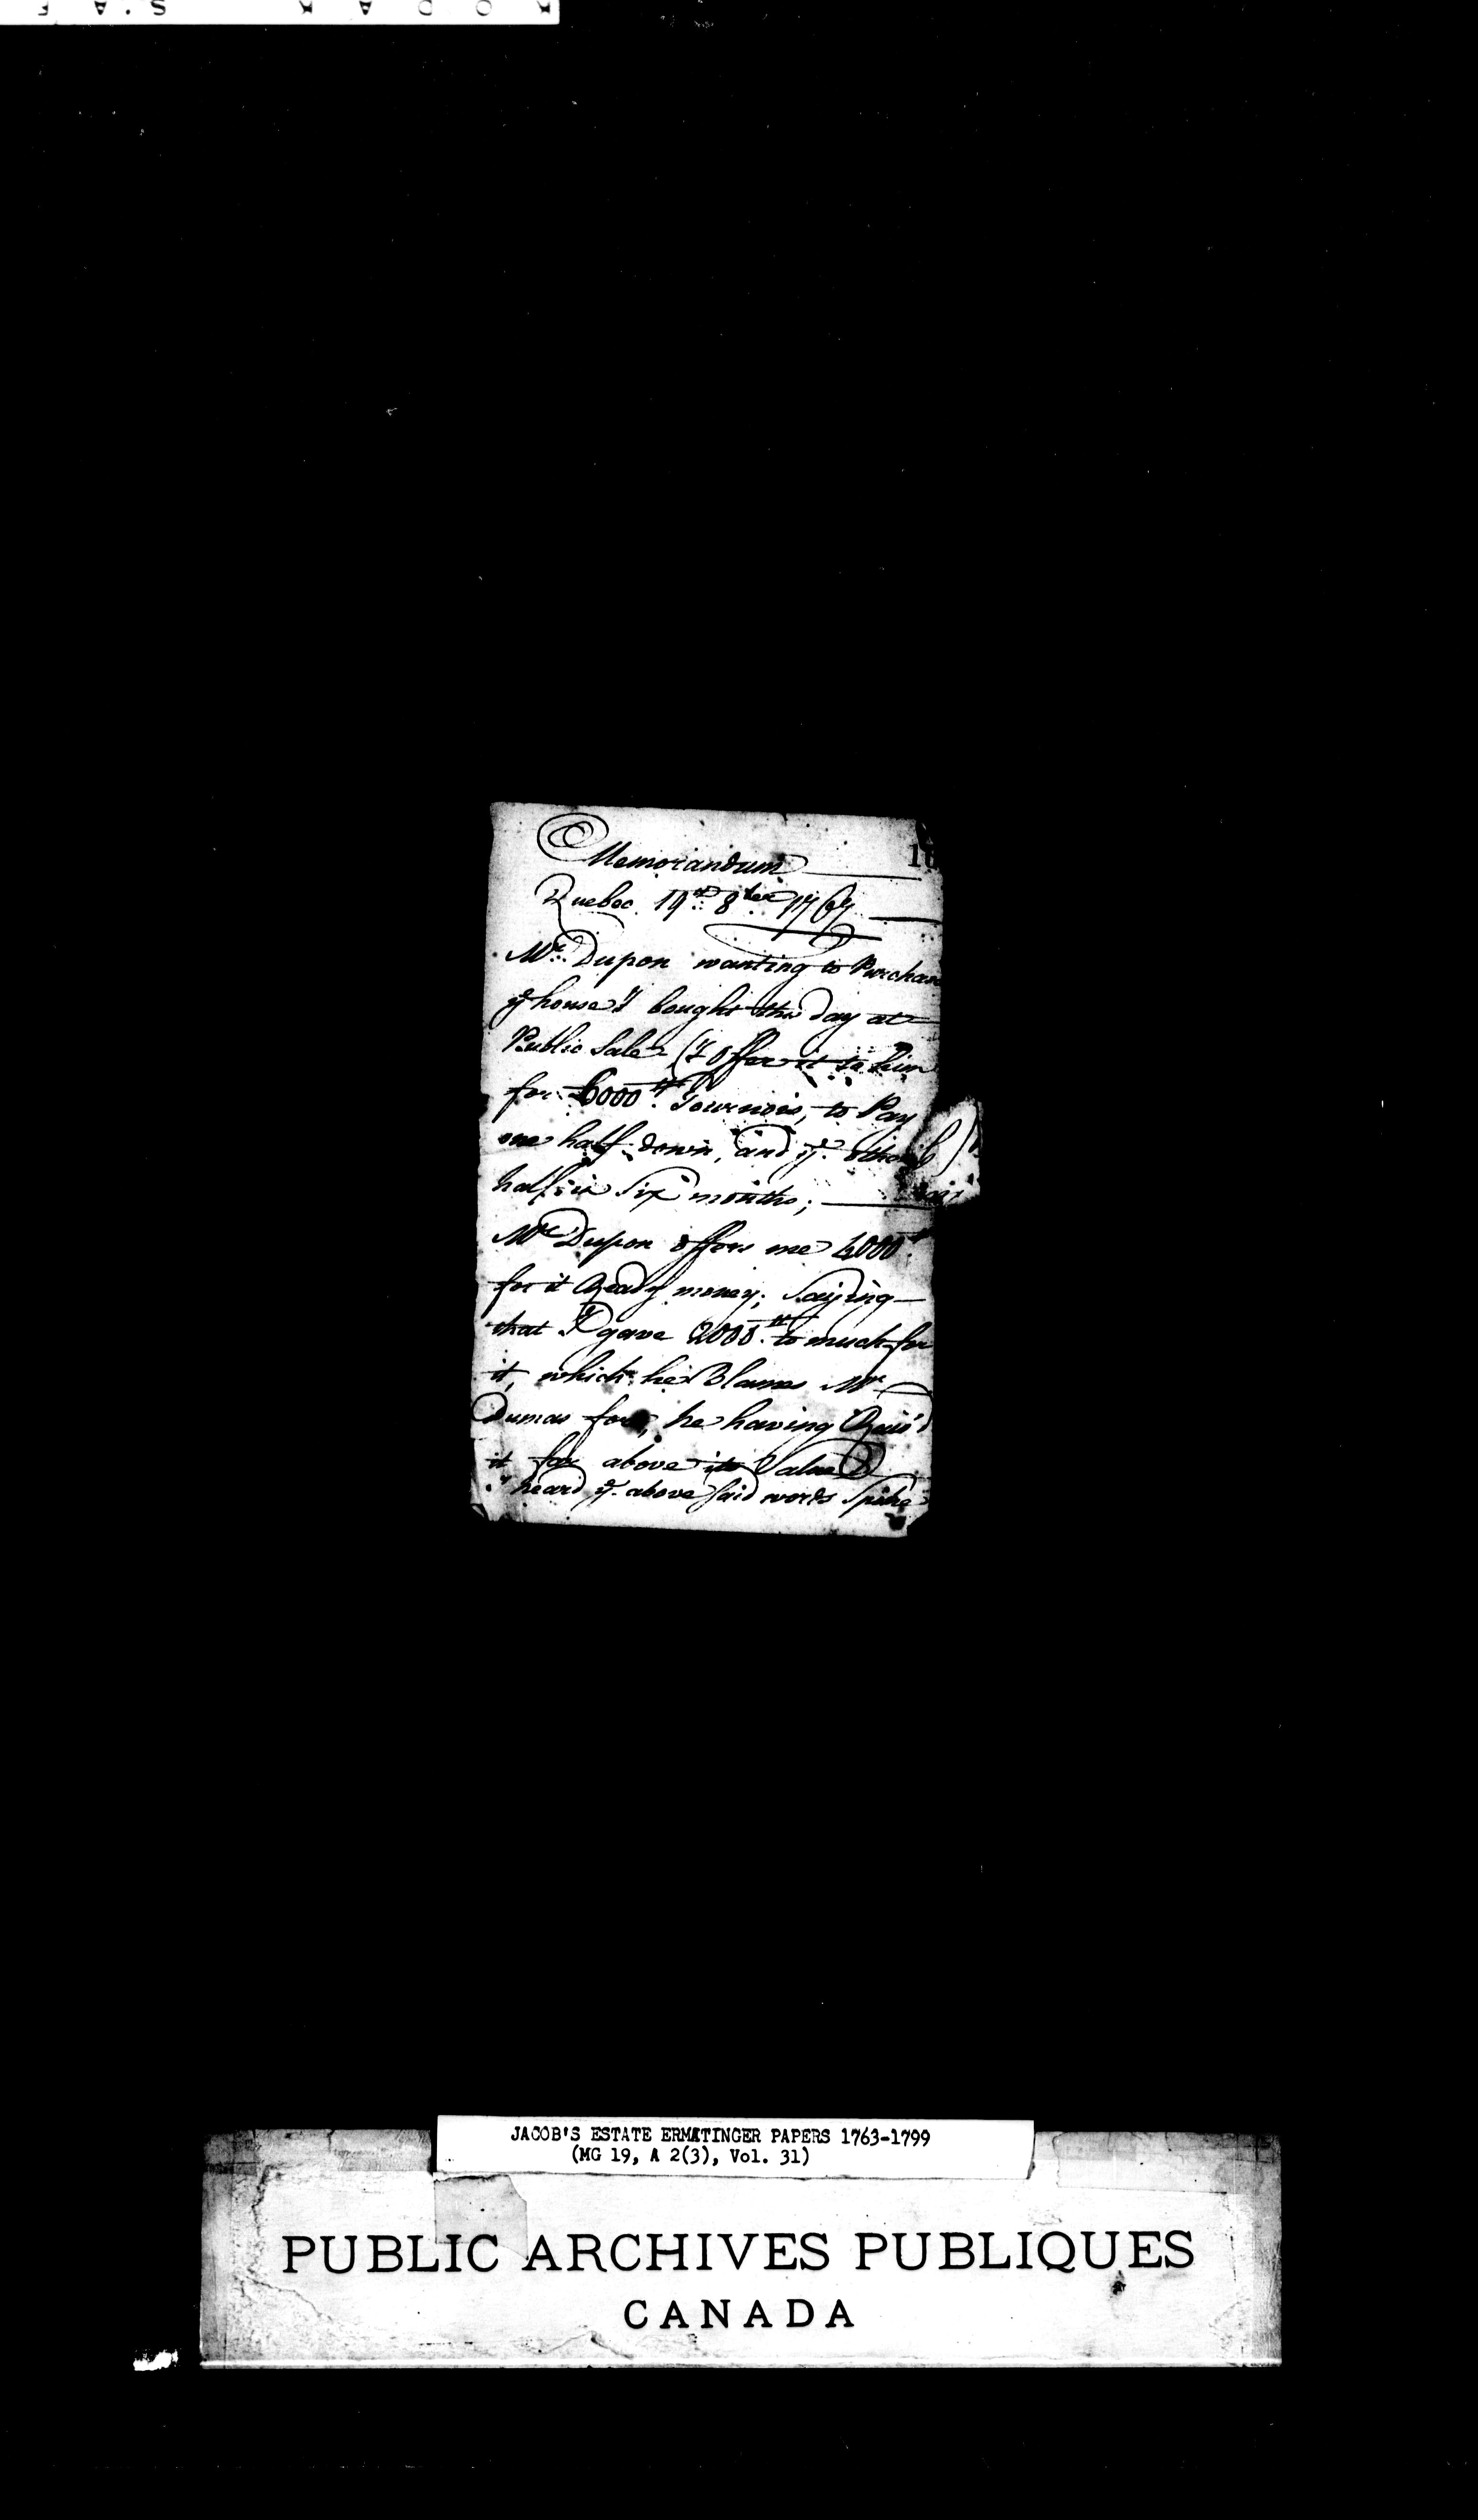 Memorandum
Quebec 19th 8ber 1767
Mr. Dupon wanting to Purchase
ye house I bought this day at
Public Sale (I offer it to him
for 6000 tt Tournois, to Pay
one half down, and ye. other
half in Six months;
Mr Dupon offers me 4000 tt
for it Ready money; Saying
that I gave 2000 tt to much for
it, which he Blames Mr
Dumas for, he having Rais'd
it far above its Value
I heard ye. above said words Spoke
JACOB'S ESTATE ERMATINGER PAPERS 1763-1799
(MG 19, A 2(3), Vol. 31)
PUBLIC ARCHIVES PUBLIQUES
CANADA